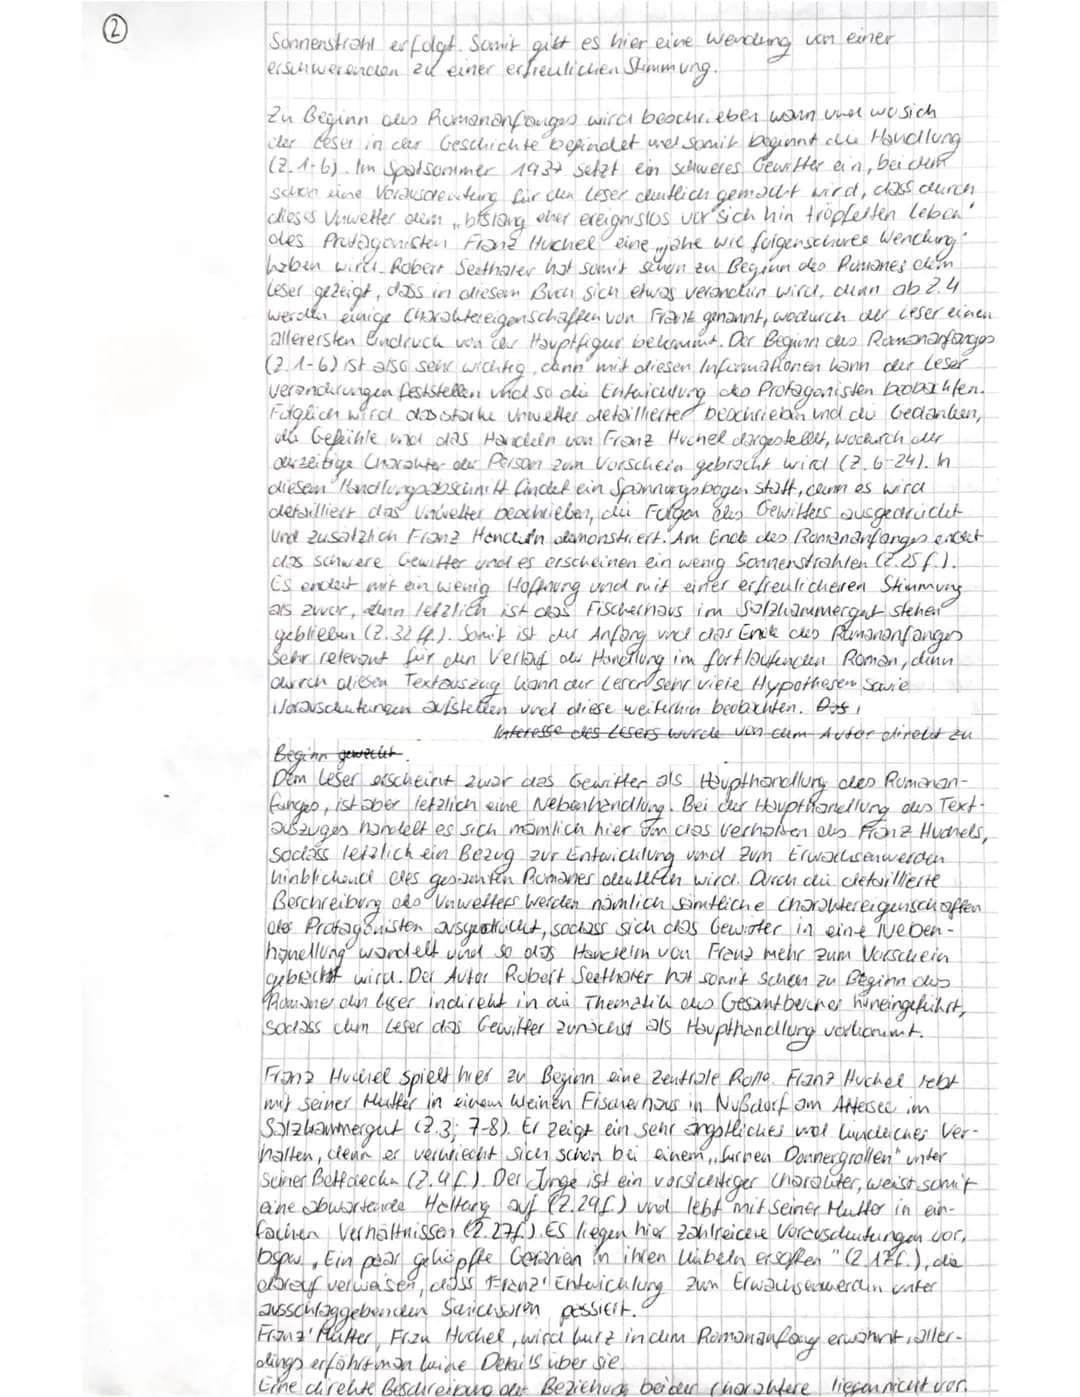 2
Sonnenstrahl erfolgt. Somit gibt es hier eine Wendung von einer
erschwerenden zu einer erfreulichen Stimmung.
Zu Beginn des Romananfanges wird beschrieben wann und wo sich
der Leser in der Geschichte befindet und somit beginnt die Handlung
(Z.1-6). Im Spätsommer 1937 setzt ein schweres Gewitter ein, bei dem
schon eine Vorausdeutung für den Leser deutlich gemacht wird, dass durch
dieses Unwetter dem „bislang eher ereignislos vor sich hin tröpfelten Leben"
des Protagonisten Franz Huchel eine „jähe wie folgenschwere Wendung"
haben wird. Robert Seethaler hat somit schon zu Beginn des Romanes dem
Leser gezeigt, dass in diesem Buch sich etwas verändern wird, denn ab Z.4
werden einige Charaktereigenschaften von Franz genannt, wodurch der Leser einen
allerersten Eindruck von der Hauptfigur bekommt. Der Beginn des Romananfanges
(Z.1-6) ist also sehr wichtig, denn mit diesen Informationen kann der Leser
Veränderungen feststellen und so die Entwicklung des Protagonisten beobachten.
Folglich wird das starke Unwetter detaillierter beschrieben und die Gedanken,
die Gefühle und das Handeln von Franz Huchel dargestellt, wodurch der
derzeitige Charakter der Person zum Vorschein gebracht wird (Z.6-24). In
diesem Handlungsabschnitt findet ein Spannungsbogen statt, denn es wird
detailliert das Unwetter beschrieben, die Folgen des Gewitters ausgedrückt
und zusätzlich Franz Handeln demonstriert. Am Ende des Romananfanges endet
das schwere Gewitter und es erscheinen ein wenig Sonnenstrahlen (Z.25f.).
Es endet mit ein wenig Hoffnung und mit einer erfreulicheren Stimmung
als zuvor, denn letzlich ist das Fischerhaus im Salzkammergut stehen
geblieben (Z.32ff.). Somit ist der Anfang und das Ende des Romananfanges
sehr relevant für den Verlauf der Handlung im fortlaufenden Roman, denn
durch diesen Textauszug kann der Leser sehr viele Hypothesen sowie
Vorausdeutungen aufstellen und diese weiterhin beobachten. Das
Interesse des Lesers wurde von dem Autor direkt zu
Beginn geweckt.
Dem Leser erscheint zwar das Gewitter als Haupthandlung des Romanan-
fanges, ist aber letzlich eine Nebenhandlung. Bei der Haupthandlung des Text-
auszuges handelt es sich nämlich hier um das Verhalten des Franz Huchels,
sodass letzlich ein Bezug zur Entwicklung und zum Erwachsenwerden
hinblickend des gesamten Romanes deutlich wird. Durch die detaillierte
Beschreibung des Unwetters werden nämlich sämtliche Charaktereigenschaften
des Protagonisten ausgedrückt, sodass sich das Gewitter in eine Neben-
handlung wandelt und so das Handeln von Franz mehr zum Vorschein
gebracht wird. Der Autor Robert Seethaler hat somit schon zu Beginn des
Romanes den Leser indirekt in die Thematik des Gesamtbuches hineingeführt,
sodass dem Leser das Gewitter zunächst als Haupthandlung vorkommt.
Franz Huchel spielt hier zu Beginn eine zentrale Rolle. Franz Huchel lebt
mit seiner Mutter in einem kleinen Fischerhaus in Nußdorf am Attersee im
Salzkammergut (Z.3; 7-8). Er zeigt ein sehr ängstliches und kindliches Ver-
halten, denn er verkriecht sich schon bei einem „fernen Donnergrollen" unter
seiner Bettdecke (Z.9f.). Der Junge ist ein vorsichtiger Charakter, weist somit
eine abwartende Haltung auf (Z.29f.) und lebt mit seiner Mutter in ein-
fachen Verhältnissen (Z.27f.). Es liegen hier zahlreiche Vorausdeutungen vor,
bspw. „Ein paar geköpfte Geranien in ihren Kübeln ersoffen" (Z.17f.), die
darauf verweisen, dass Franz' Entwicklung zum Erwachsenwerden unter
ausschlaggebenden Schicksalen passiert.
Franz' Mutter, Frau Huchel, wird kurz in dem Romananfang erwähnt, aller-
dings erfährt man keine Details über sie.
Eine direkte Beschreibung der Beziehung beider Charaktere liegen nicht vor,